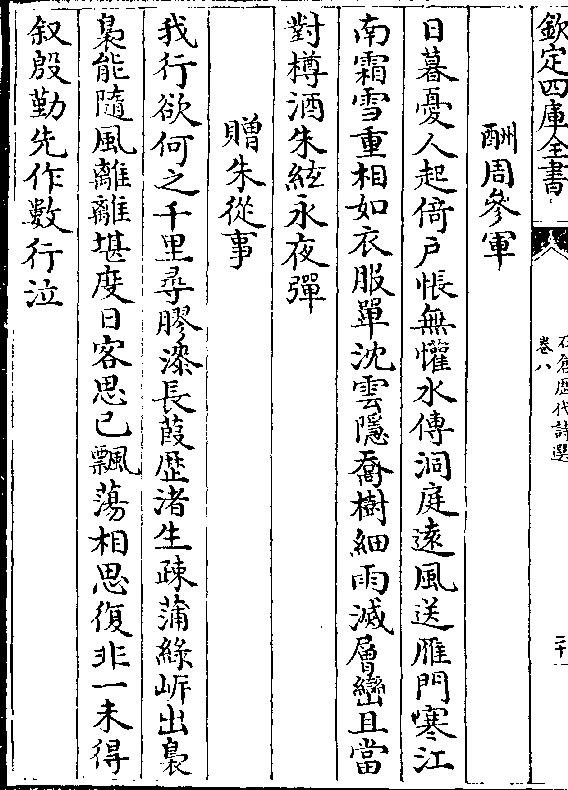 欽定四庫全書
卷八
酬周參軍
日暮憂人起倚户悵無懽水傳洞庭逺風送雁門寒江
南霜雪重相如衣服單沈雲隱喬樹細雨滅層巒且當
對樽酒朱絃永夜彈
贈朱從事
我行欲何之千里尋膠漆長葭歴渚生疎蒲緑㟁出裊
裊能隨風離離堪度日客思已飄蕩相思復非一未得
叙殷勤先作數行泣